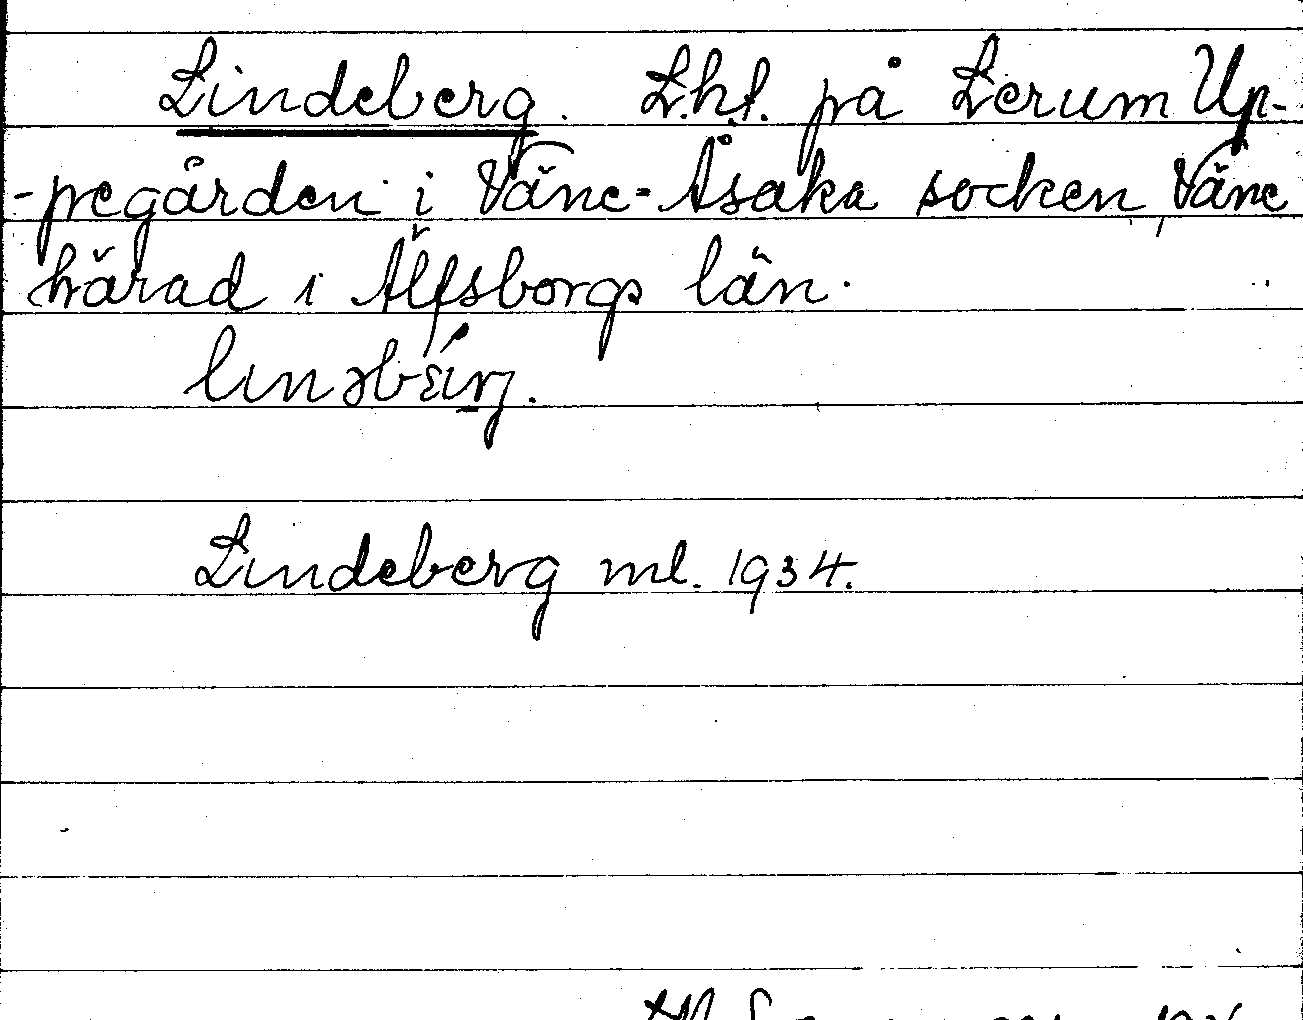 Lindeberg. L.hl. på Lerum Up-
-pegården i Väne-Åsaka socken, Väne
härad i Älfsborgs län.
Lindeberg ml. 1934.